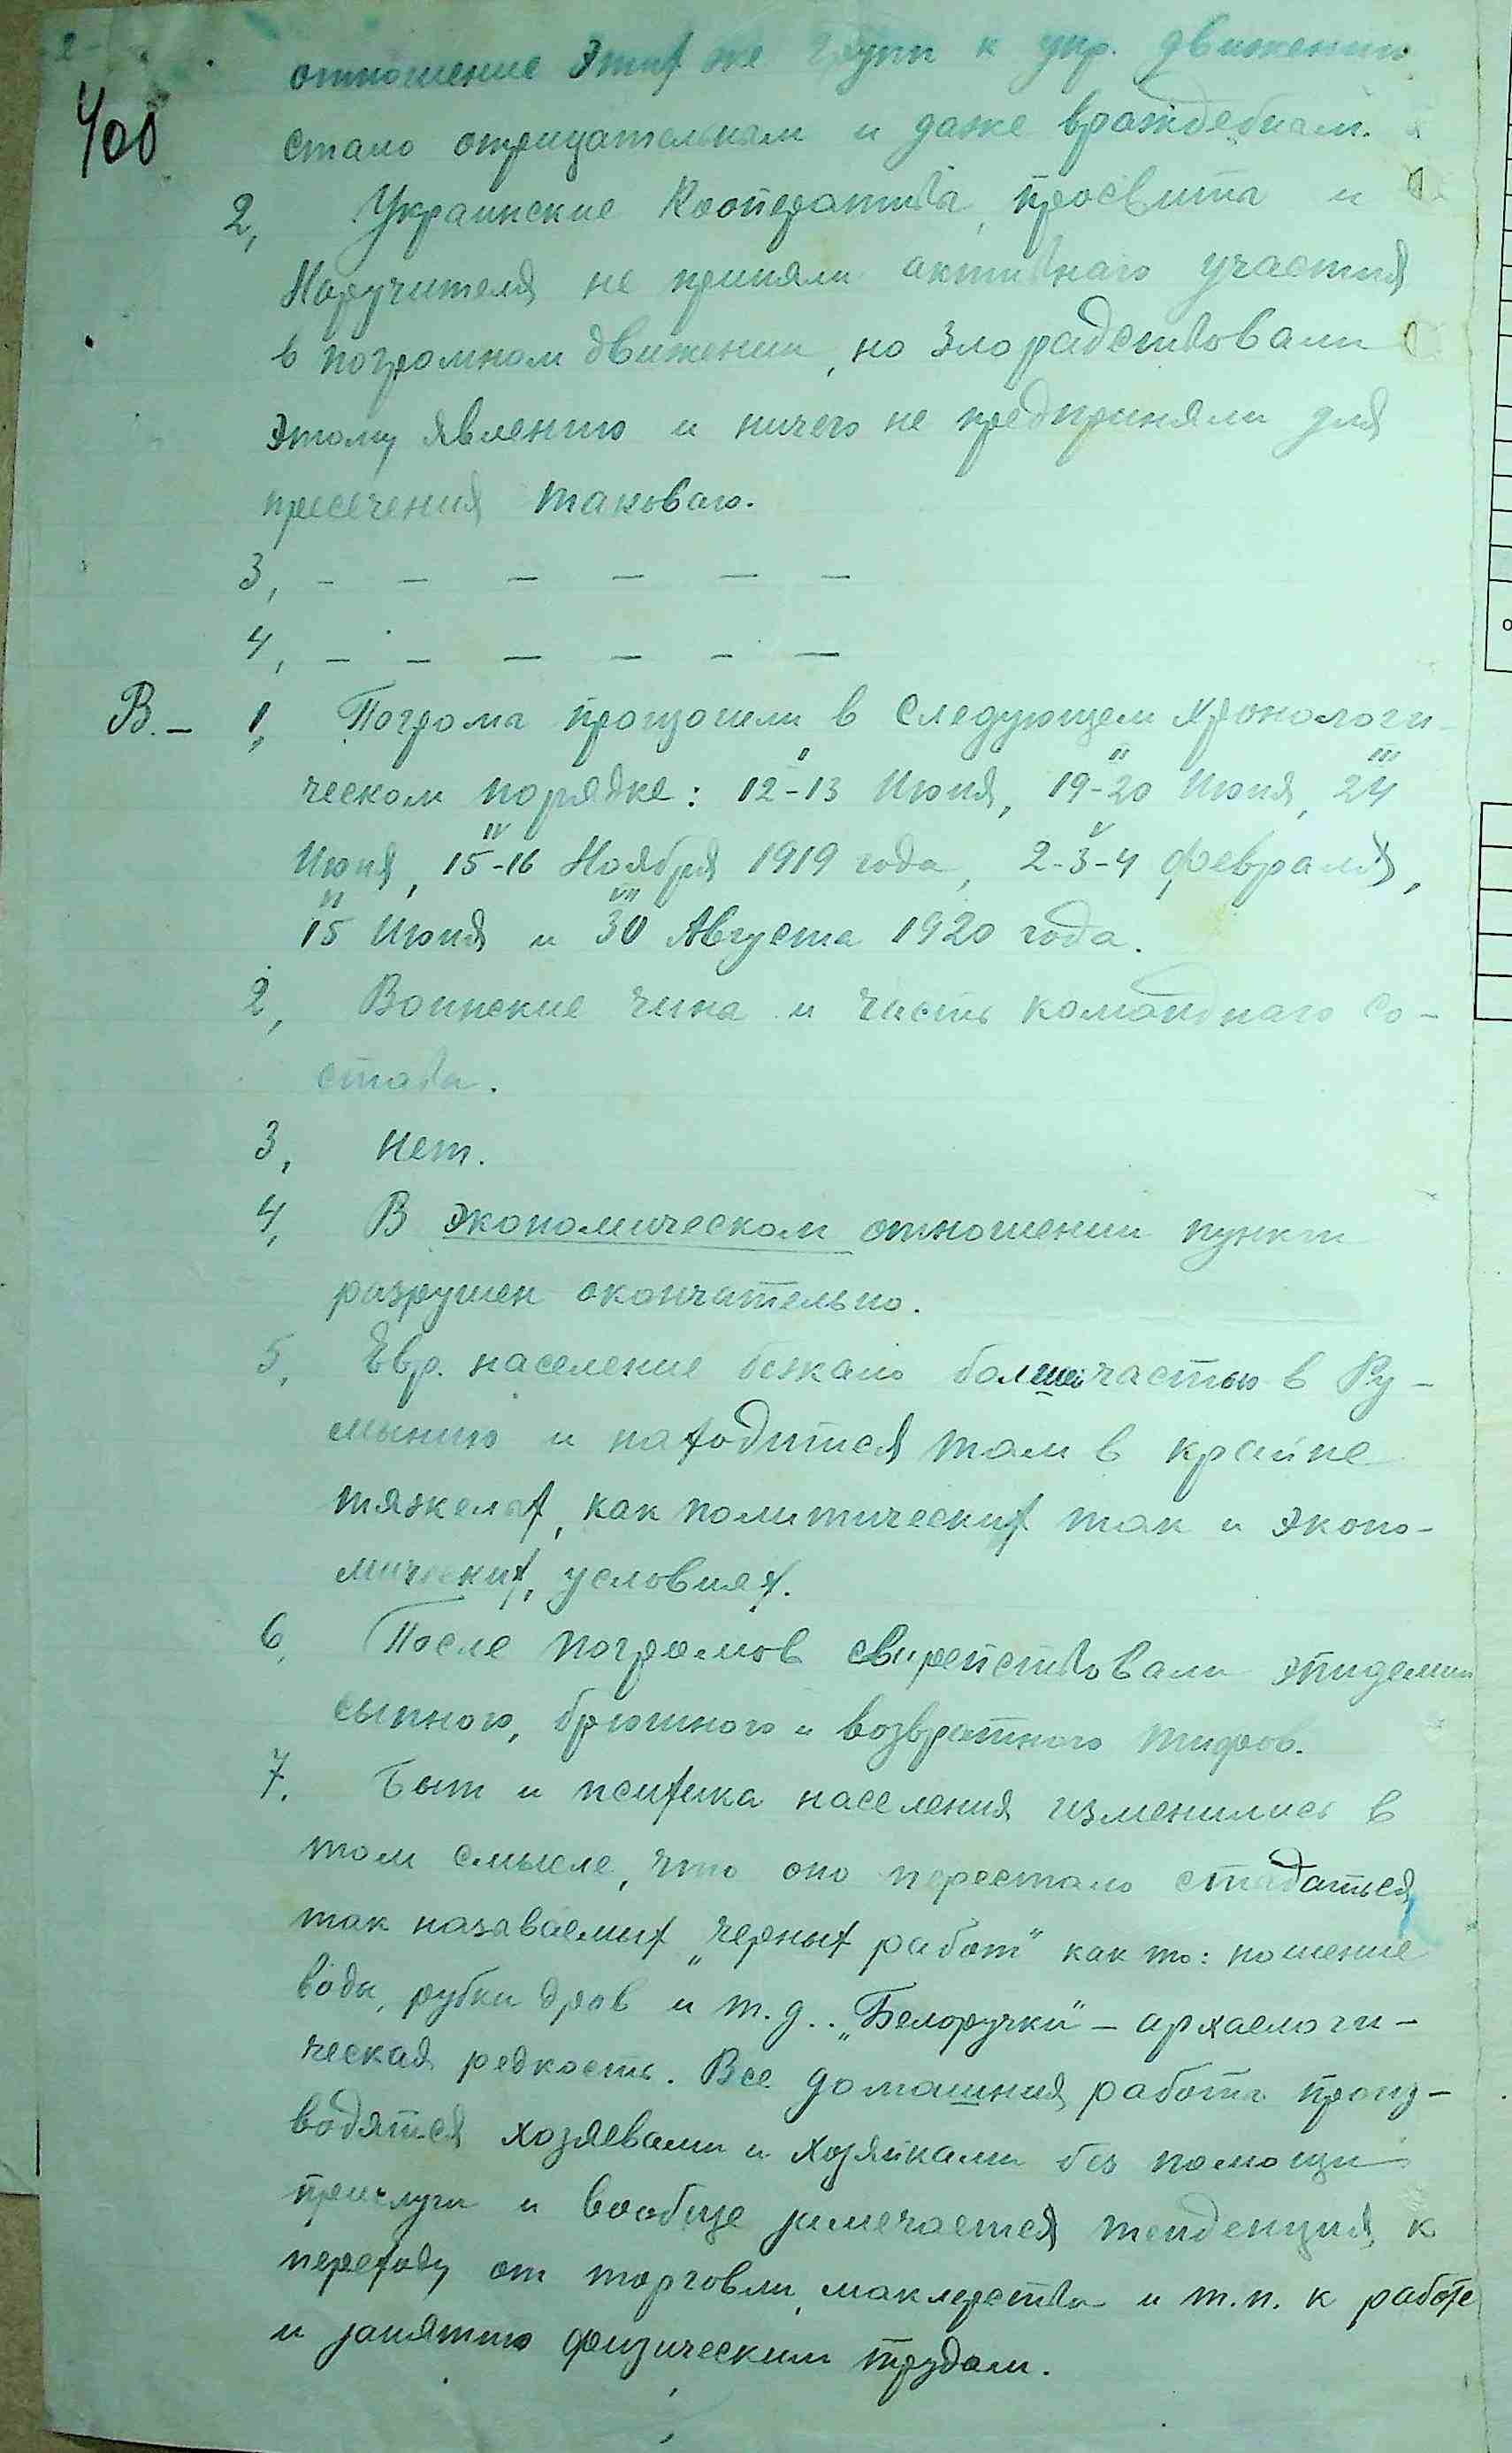 -2-
400
отношение этих же групп к укр. движению
стало отрицательным и даже враждебным.
2, Украинские Кооператива, просвита и
Наручителя не приняли активнаго участия
в погромном движении, но злорадствовали
этому явлению и ничего не предприняли для
пресечения таковаго.
3, – – – – – –
4, – – – – – –
В. – 1, Погрома произошли в следующем хронологи-
II III
ческом порядке: 12-13 Июня, 19-20 Июня, 24
IV V
Июня, 15-16 Ноября 1919 года, 2-3-4 февраля,
VI VII
15 Июня и 30 Августа 1920 года.
2, Воинские чина и часть команднаго со-
става.
3, Нет.
4, В экономическом отношении пункт
разрушен окончательно.
5, Евр. население бежало болшей частью в Ру-
мынию и находится там в крайне
тяжелых, как политических так и эконо-
мических, условиях.
6, После погромов свирепствовали эпидемии
сыпного, брюшного и возвратного тифов.
7. Быт и психика населения изменились в
том смысле, что оно перестало стыдаться
так назаваемых „черных работ" как то: ношение
вода, рубки дров и т.д.. „Белоручки" – архаелоги-
ческая редкость. Все домашния работа произ-
водятся хозяевами и хозяйками без помощи
прислуги и вообще замечается тенденция к
переходу от торговли, маклерства и т.п. к работе
и занятию физическим трудом.